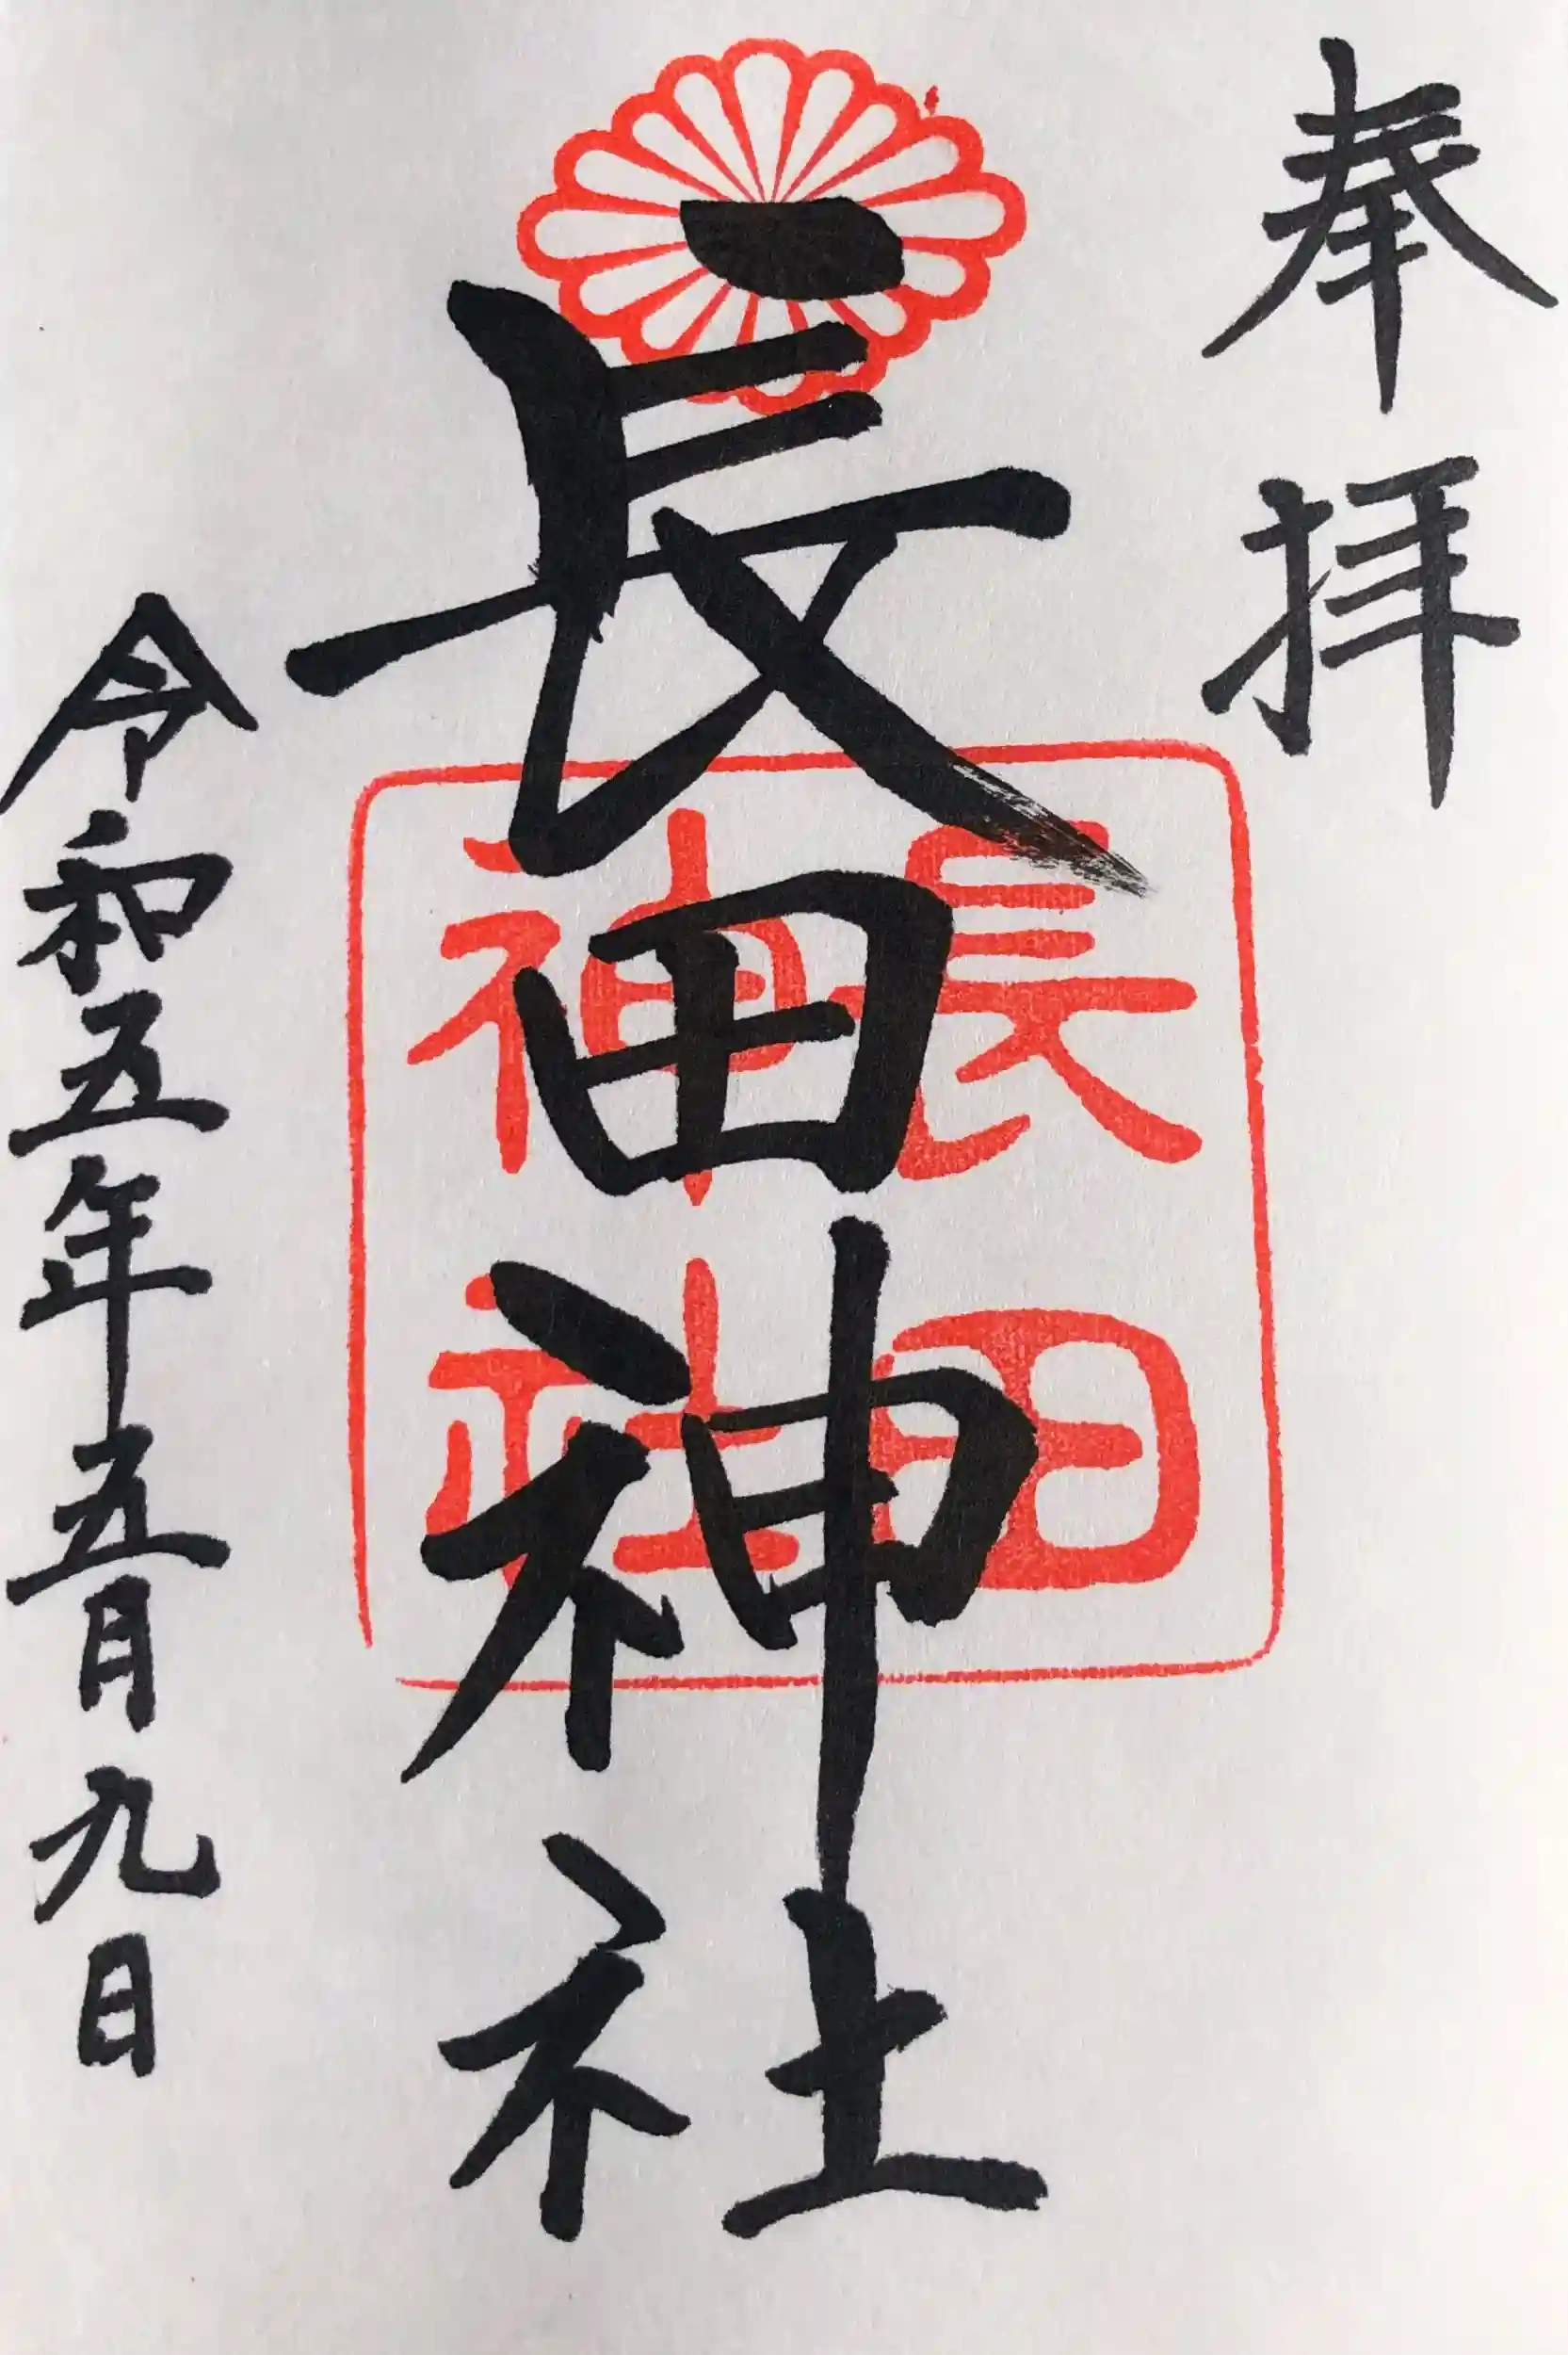 奉拝
長田神社
長田
神社
令和五年五月九日